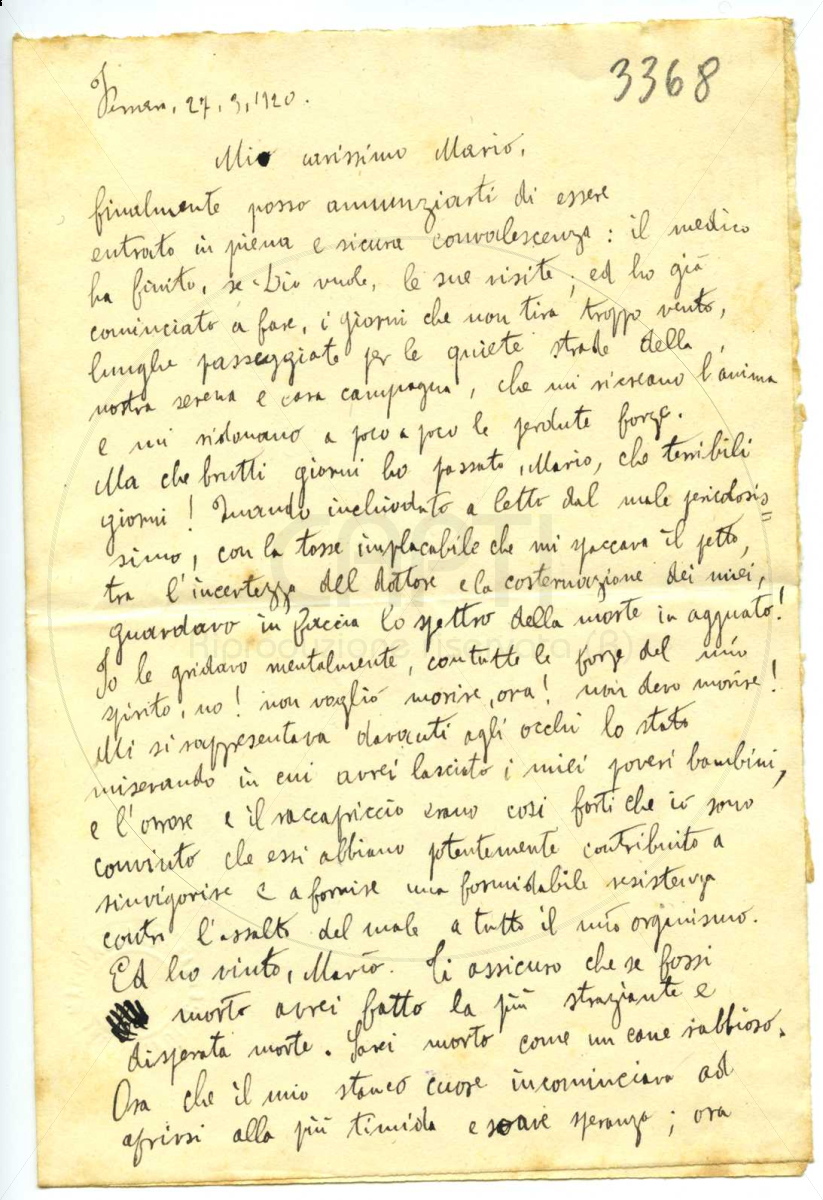 3368
27, 3, 1920.
Mio carissimo Mario,
finalmente posso annunziarti di essere
entrato in piena e sicura convalescenza: il medico
ha finito, se Dio vuole, le sue visite; ed ho già
cominciato a fare, i giorni che non tira troppo vento,
lunghe passeggiate per le quiete strade della
nostra serena e cara campagna, che mi ricreano l'anima
e mi ridonano a poco a poco le perdute forze.
Ma che brutti giorni ho passato, Mario, che terribili
giorni! Quando inchiodato a letto dal male pericolosis=
simo, con la tosse implacabile che mi spaccava il petto,
tra l'incertezza del dottore e la costernazione dei miei,
guardavo in faccia lo spettro della morte in agguato!
Io le gridavo mentalmente, con tutte le forze del mio
spirito, no! non voglio morire, ora! non devo morire!
Mi si rappresentava davanti agli occhi lo stato
miserando in cui avrei lasciato i miei poveri bambini,
e l'orrore e il raccapriccio erano così forti che io sono
convinto che essi abbiano potentemente contribuito a
rinvigorire e a fornire una formidabile resistenza
contro l'assalto del male a tutto il mio organismo.
Ed ho vinto, Mario. Ti assicuro che se fossi
morto avrei fatto la più straziante e
disperata morte. Sarei morto come un cane rabbioso.
Ora che il mio stanco cuore incominciava ad
aprirsi alla più timida e soave speranza; ora